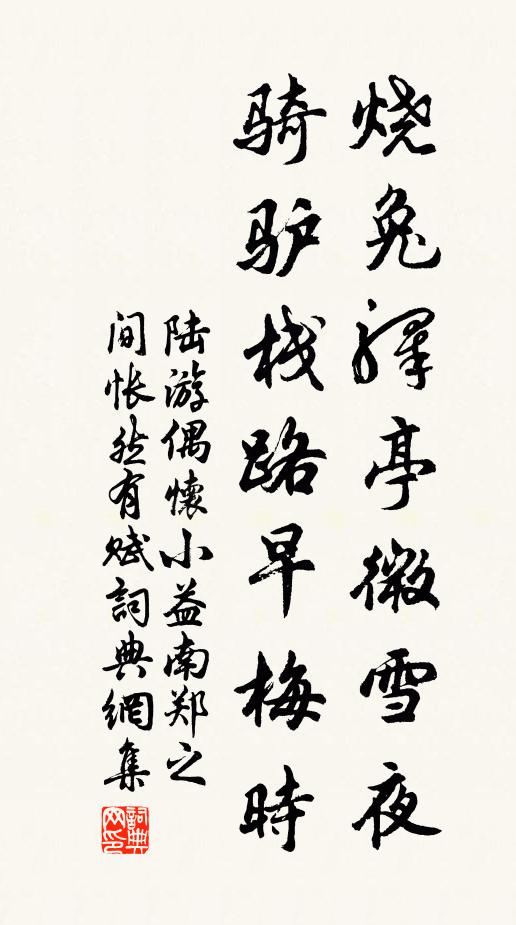 烧兔驿亭微雪夜
骑驴栈路早梅時
陆游偶懷小益南郑之
间怅然有赋詞典網集
詞典
网印